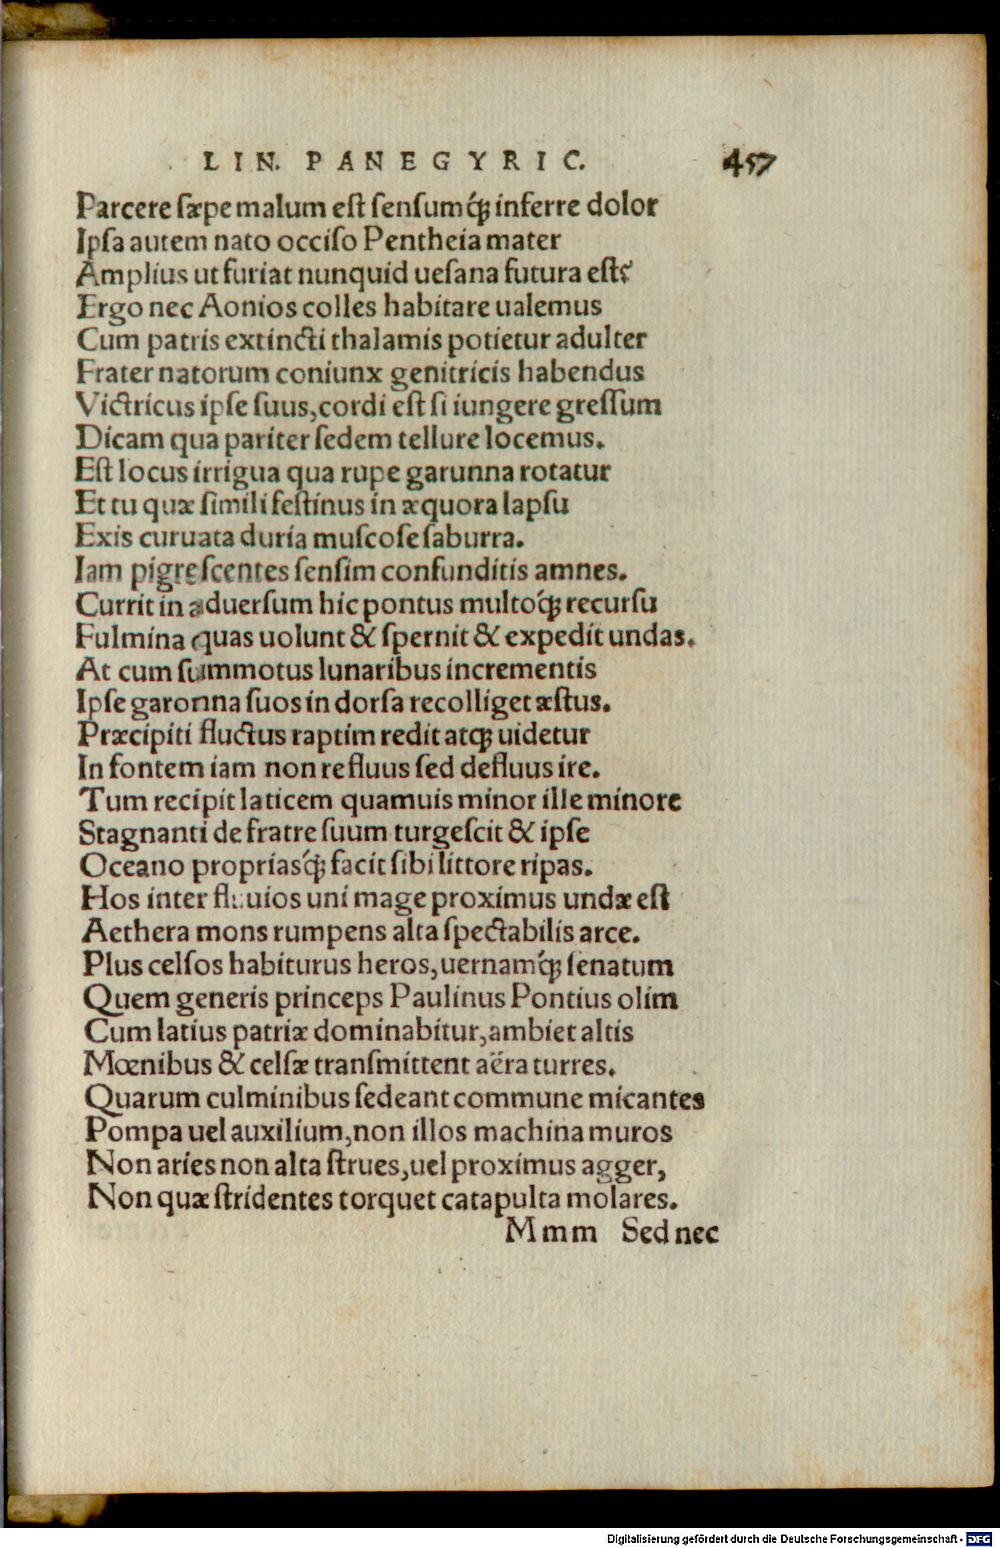 LIN. PANEGYRIC. 457
Parcere sæpe malum est sensumq́ꝫ inferre dolor
Ipsa autem nato occiso Pentheia mater
Amplius ut furiat nunquid uesana futura est?
Ergo nec Aonios colles habitare ualemus
Cum patris extincti thalamis potietur adulter
Frater natorum coniunx genitricis habendus
Victricus ipse suus, cordi est si iungere gressum
Dicam qua pariter sedem tellure locemus.
Est locus irrigua qua rupe garunna rotatur
Et tu quæ simili festinus in æquora lapsu
Exis curuata duria muscose saburra.
Iam pigrescentes sensim confunditis amnes.
Currit in aduersum hic pontus multoq́ꝫ recursu
Fulmina quas uolunt & spernit & expedit undas.
At cum summotus lunaribus incrementis
Ipse garonna suos in dorsa recolliget æstus.
Præcipiti fluctus raptim redit atqꝫ uidetur
In fontem iam non refluus sed defluus ire.
Tum recipit laticem quamuis minor ille minore
Stagnanti de fratre suum turgescit & ipse
Oceano propriasq́ꝫ facit sibi littore ripas.
Hos inter fluuios uni mage proximus undæ est
Aethera mons rumpens alta spectabilis arce.
Plus celsos habiturus heros, uernamq́ꝫ senatum
Quem generis princeps Paulinus Pontius olim
Cum latius patriæ dominabitur, ambiet altis
Mœnibus & celsæ transmittent aëra turres.
Quarum culminibus sedeant commune micantes
Pompa uel auxilium, non illos machina muros
Non aries non alta strues, uel proximus agger,
Non quæ stridentes torquet catapulta molares.
Mmm Sed nec
Digitalisierung gefördert durch die Deutsche Forschungsgemeinschaft - DFG